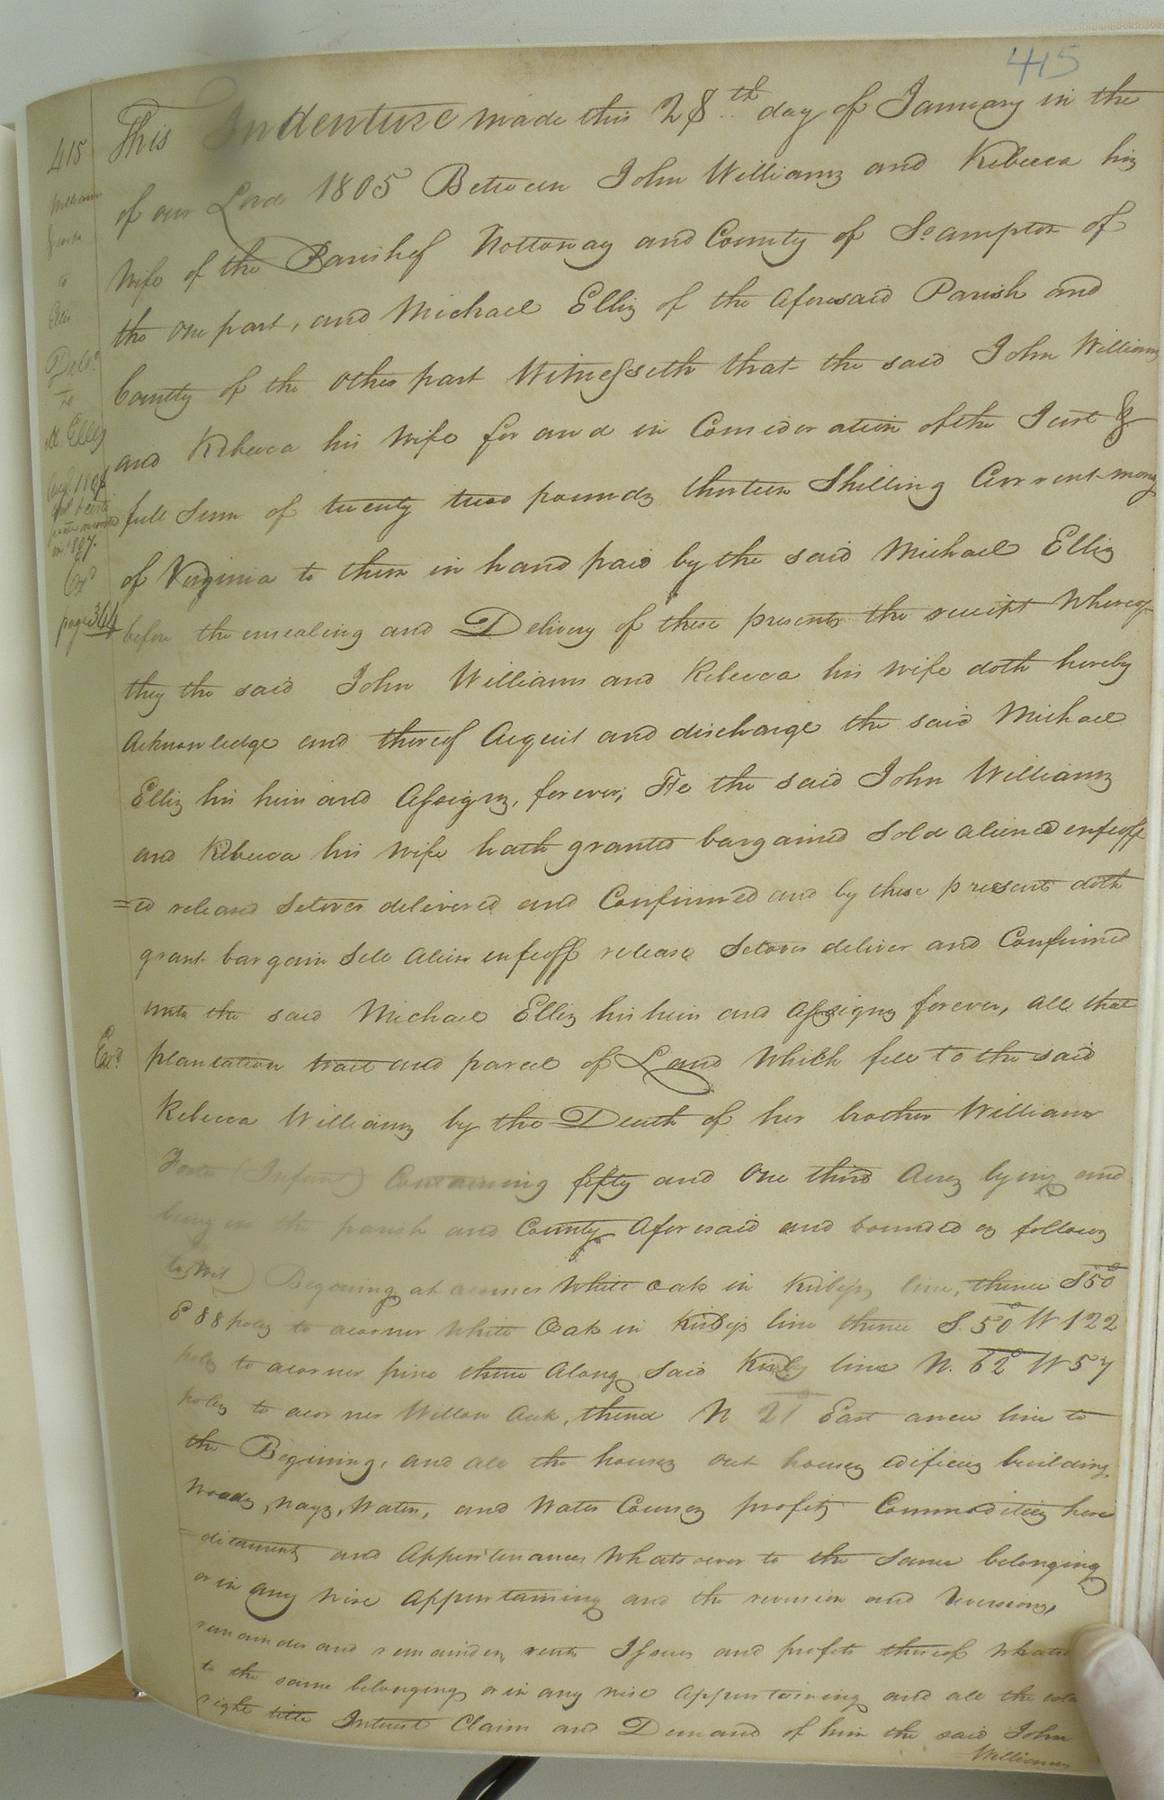 415
This Indenture made this 28th day of January in the
of our Lord 1805 Between John Williams and Rebecca his
Wife of the Parish of Nottoway and County of So:ampton of
the one part, and Michael Ellis of the Aforesaid Parish and
County of the other part Witnesseth that the said John Williams
and Rebecca his Wife for and in Consideration of the Just &
full Sum of twenty two pounds thirteen Shilling Current money
of Virginia to them in hand paid by the said Michael Ellis
before the ensealing and Delivery of these presents the receipt Whereof
they the said John Williams and Rebecca his wife doth hereby
Acknowledge and thereof Acquit and discharge the said Michael
Ellis his heirs and Assigns, forever, He the said John Williams
and Rebecca his Wife hath granted bargained Sold aliened enfeoff
=ed released Setover delivered and Confirmed and by these presents doth
grant bargain Sell Alien enfeoff release Setover deliver and Confirmed
unto the said Michael Ellis his heirs and Assigns forever, all that
plantation tract and parcel of Land Which fell to the said
Rebecca Williams by the Death of her brother Williams
(Infant) Containing fifty and One third Acres lying and
being in the parish and County Aforesaid and bounded as follows
to Wit) Begining at acorner White oak in Kirbys line, thence S50°
E 88 poles to acorner White Oak in Kirbys line thence S. 50° W 122
poles to acorner pine thence Along Said Kirby line N. 62° W 57
poles to acorner Willow Oak, thence N 21° East anew line to
the Begining, and all the houses out houses edifices building,
Woods, Ways, Waters, and Water Courses profits Commodities here
=ditaments and Appurtenances Whatsoever to the Same belonging
or in any wise Appurtaining and the reversion and Reversions,
remainder and remainders, rents Issues and profits thereof Whats
to the same belonging or in any wise Appurtaining and all the
right title Interest Claim and Demand of him the said John
Williams
415
to
Ellis
To
M Ellis
Exd
page 344
Exd.